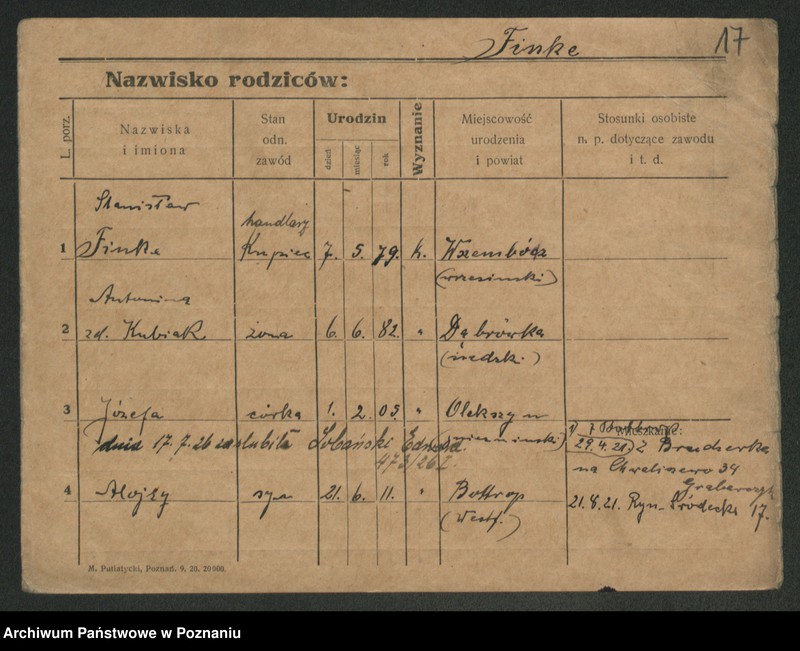 Finke
17
Nazwisko rodziców:
L. porz.
Nazwiska
i imiona
Stan
odn.
zawód
Urodzin
dzień
miesiąc
rok
Wyznanie
Miejscowość
urodzenia
i powiat
Stosunki osobiste
n. p. dotyczące zawodu
i t. d.
Stanisław handlarz
1 Finke Kupiec 7. 5. 79. k.
(wrzesinski)
Antonina
2 zd. Kubiak żona 6. 6. 82. " Dąbrówka
3 Józefa córka 1. 2. 05. "
mieszkanie:
dnia 17. 7. 26 zaślubiła
29.4.21.) z
473/26
na Chwaliszewo 34
4 Alojzy syn 21. 6. 11. " Bottrop
(Westf.)
21.8.21. Ryn-Śródecki 17.
M. Putiatycki, Poznań. 9. 20. 20000.
Archiwum Państwowe w Poznaniu